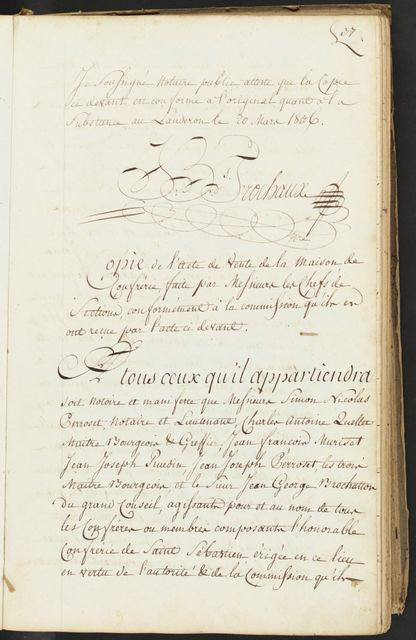 87
Je Soussigné Notaire public atteste que la Copie
ci devant est conforme à l'original quant à la
Substance au Landeron le 20 Mars 1806.
Frochaux
Nre
Copie de l'Acte de Vente de la Maison de
Confrérie faite par Messieurs les Chefs de
Sections conformément à la commission qu'ils en
ont reçue par l'acte ci devant.
A tous ceux qu'il appartiendra
soit Notoire et manifeste que Messieurs Simon Nicolas
Perroset Notaire et Lieutenant, Charles Antoine Quellet
Maitre Bourgeois & Greffier, Jean francois Muriset
Jean Joseph Jean Joseph Perroset les trois
Maitre Bourgeois et le Sieur Jean George Brochatton
du grand Conseil, agissants pour et au nom de tous
les Confreres ou membres composants l'honorable
Confrérie de Saint Sébastien érigée en ce lieu
en vertu de l'autorité & de la Commission qu'ils